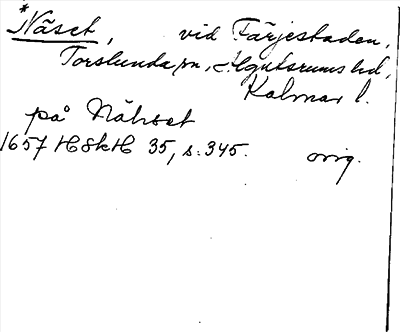 *Näset, vid Färjestaden,
Torslunda sn, Algutsrums hd,
Kalmar l.
på Nähset
1657 HSkH 35, s. 345. orig.